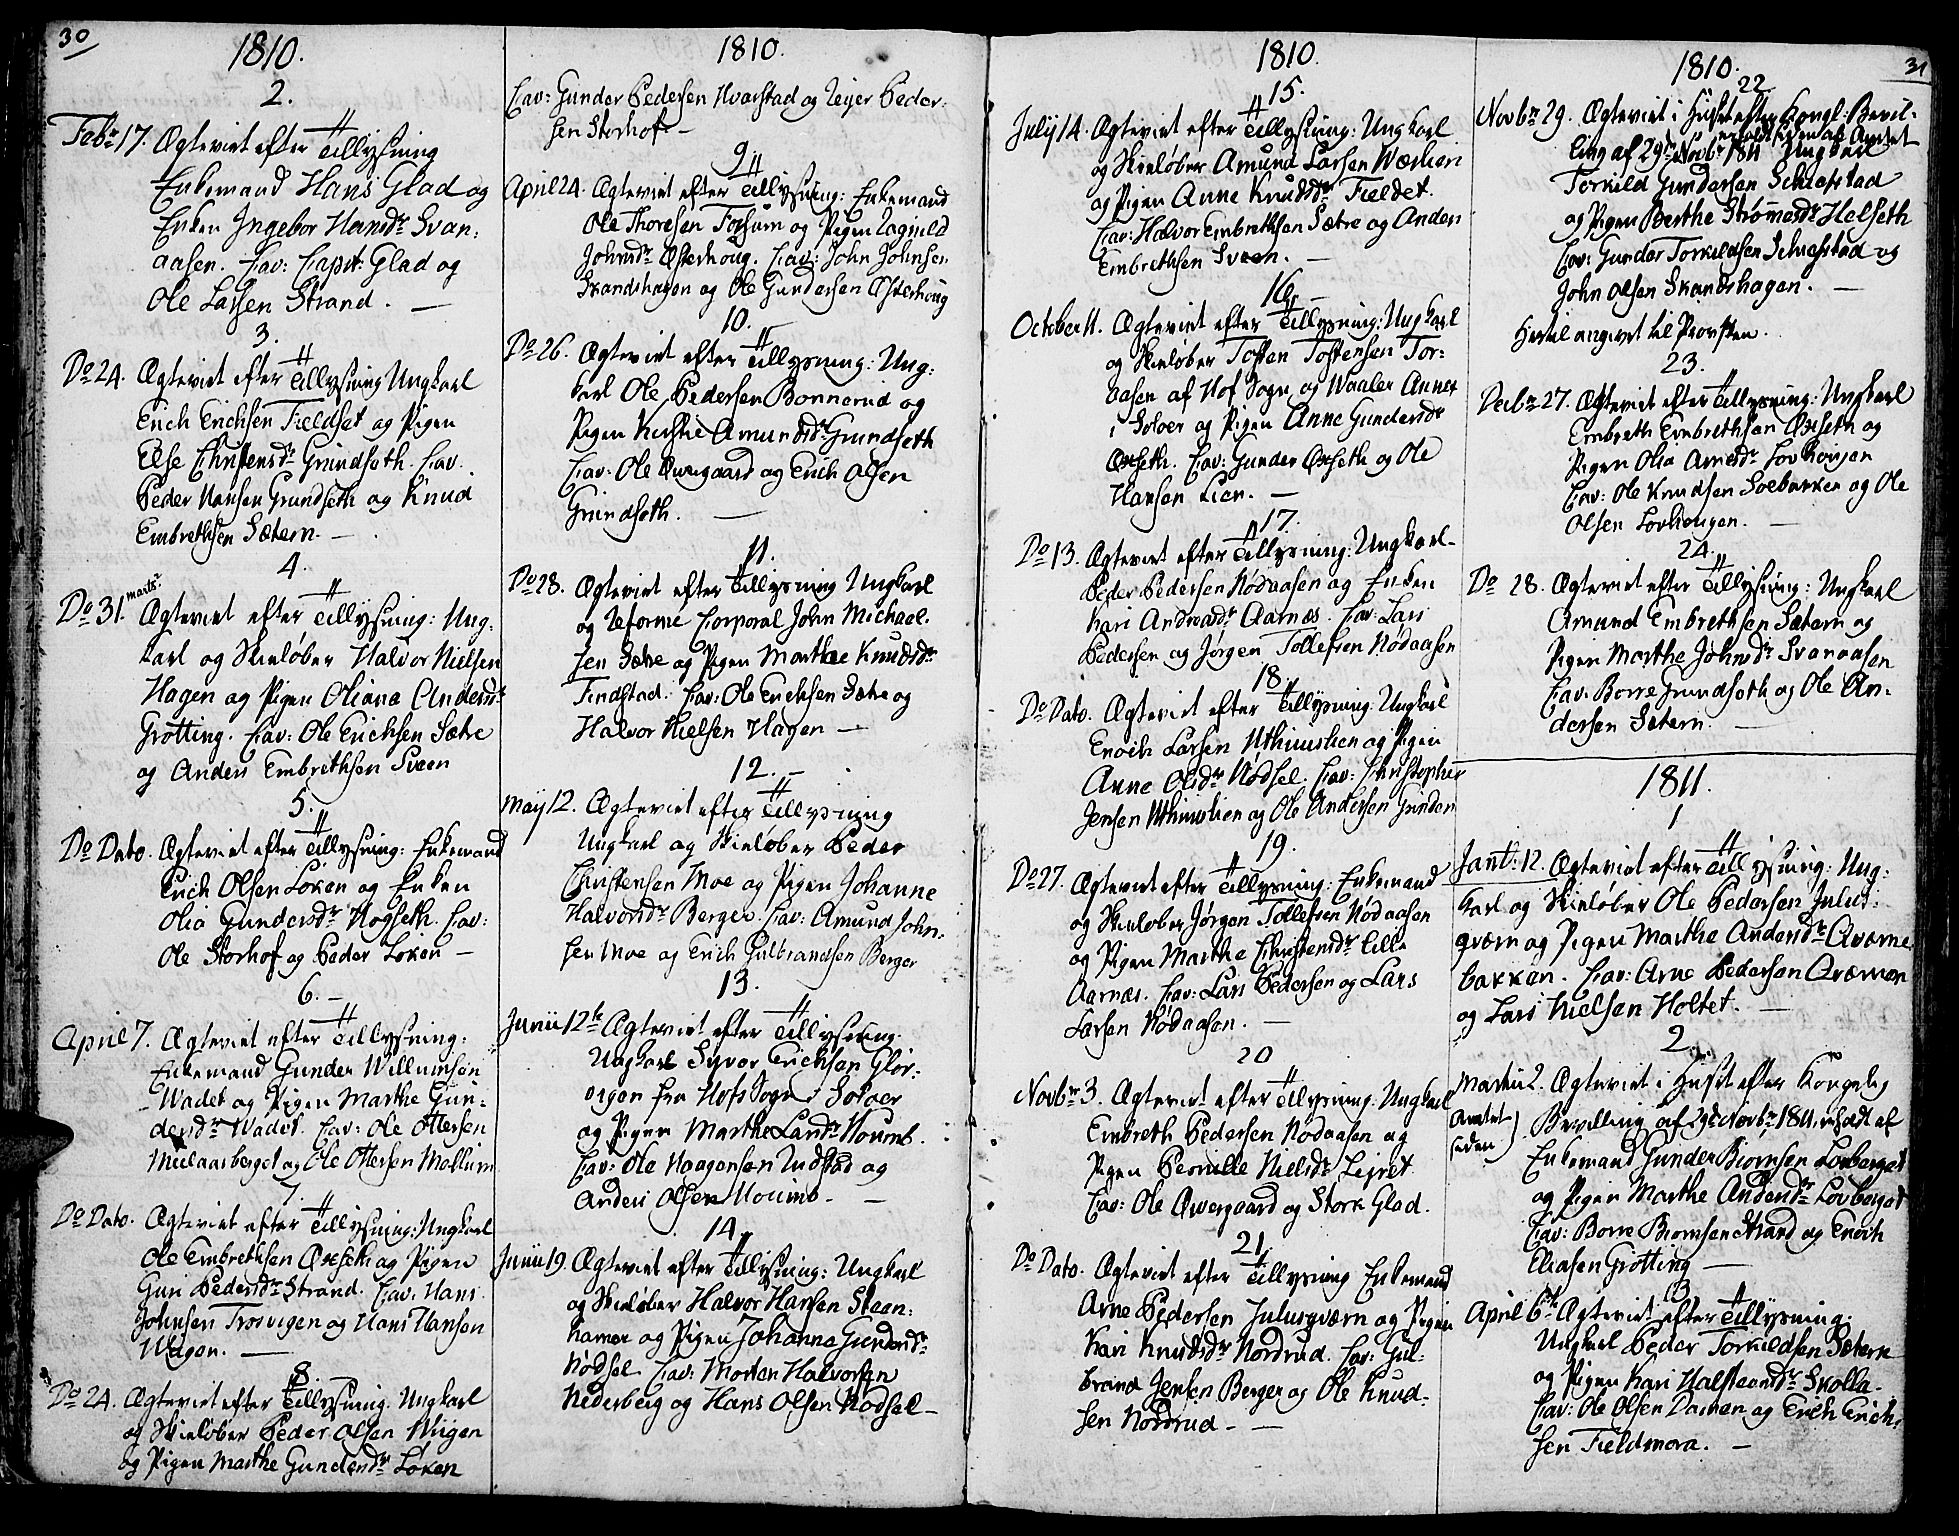 30
1810.
2.
Febr 17. Ægteviet efter Tillysning
Enkemand Hans Glad og
Enken Ingebor Hansdr Svan-
aasen. Cav: Capit: Glad og
Ole Larsen Strand. —
3.
Do 24. Ægteviet efter Tillysning Ungkarl
Erich Erichsen Fieldset og Pigen
Else Christensdr Grundseth. Cav.
Peder Hansen Grundseth og Knud
Embrethsen Sætern. —
4.
Do 31. marts. Ægteviet efter Tillysning: Ung-
karl og Skieløber Halvor Nielsen
Hagen og Pigen Oliana Andersdr
Grøtting. Cav: Ole Erichsen Sætre
og Anders Embrethsen Sveen
5.
Do Dato. Ægteviet efter Tillysning: Enkemand
Erich Olsen Løken og Enken
Olia Gundersdr Hogseth. Cav:
Ole Storhof og Peder Løken —
6. —
April 7. Ægteviet efter Tillysning:
Enkemand Gunder Willumsen
Wadet og Pigen Marthe Gun-
dersdr Wadet. Cav: Ole Ottersen
Mielaasberget og Ole Ottersen Mellum
7.
Do Dato. Ægteviet efter Tillysning: Ungkarl
Ole Embrethsen Oxseth og Pigen
Guri Pedersdr Strand. Cav: Hans
Johnsen Trosvigen og Hans Hansen
Wigen. —
8.
Do 24. Ægteviet efter Tillysning. Ungkarl
og Skieløber Peder Olsen Wiigen
og Pigen Marthe Gundersdr Løken
1810.
Cav: Gunder Pedersen Hvarstad og Reier Peder-
sen Storhof —
9.
April 24. Ægteviet efter Tillysning: Enkemand
Ole Thoresen Fossum og Pigen Ragnild
Johnsdr Østerhoug. Cav: John Johnsen
Skandshagen og Ole Gundersen Østerhoug
10.
Do 26. Ægteviet efter Tillysning: Ung-
karl Ole Pedersen Bonnerud og
Pigen Kirstie Amundsdr Grundseth
Cav: Ole Qvergaard og Erich Olsen
Grundseth. —
11.
Do 28. Ægteviet efter Tillysning Ungkarl
og Reforme Corporal John Michael-
sen Sætre og Pigen Marthe Knudsdr
Findstad. Cav: Ole Erichsen Sætre og
Halvor Nielsen Hagen —
12. —
May 12. Ægteviet efter Tillysning
Ungkarl og Skieløber Peder
Christensen Moe og Pigen Johanne
Halvorsdr Berger. Cav: Amund John-
sen Moe og Erich Gulbrandsen Berger
13.
Junii 12te Ægteviet efter Tillysning.
Ungkarl Syver Erichsen Glor-
vigen fra Hofs Sogn Soloer
og Pigen Marthe Larsdr Noumb.
Cav: Ole Haagensen Rudstad og
Anders Olsen Noumb. —
14.
Junii 19. Ægteviet efter Tillysning: Ungkarl
og Skieløber Halvor Hansen Steen-
hamer og Pigen Johanna Gundersdr
Nødsel. Cav: Morten Halvorsen
Nederberg og Hans Olsen Nødsel —
1810.
15.
July 14. Ægteviet efter Tillysning: Ungkarl
og Skieløber Amund Larsen Wæshien
og Pigen Anne Knudsdr Fieldet.
Cav: Halvor Embrethsen Sætre og Anders
Embrethsen Sveen. —
16. —
October 11. Ægteviet efter Tillysning: Ungkarl
og Skieløber Tosten Tostensen Tor-
aasen af Hof Sogn og Waaler Annex
i Soloer og Pigen Anne Gundersdr
Oxseth. Cav: Gunder Oxseth og Ole
Hansen Lien. —
17.
Do 13. Ægteviet efter Tillysning: Ungkarl-
Peder Pedersen Nødaasen og Enken
Kari Andreasdr Aarnes. Cav: Lars
Pedersen og Jørgen Tollefsen Nødaasen
18.
Do Dato. Ægteviet efter Tillysning: Ungkarl
Enoch Larsen Uthuuslien og Pigen
Anne Olsdr Nødsel. Cav: Christopher
Jensen Uthuuslien og Ole Andersen Gunden
19.
Do 27. Ægteviet efter Tillysning: Enkemand
og Skieløber Jørgen Tollefsen Nødaasen
og Pigen Marthe Christensdr Lille
Aarnæs. Cav: Lars Pedersen og Lars
Larsen Nødaasen. —
20
Novbr 3. Ægteviet efter Tillysning: Ungkarl
Embreth Pedersen Nødaasen og
Pigen Pernille Nielsdr Lejret.
Cav: Ole Qvergaard og Stork Glad.
21.
Do Dato. Ægteviet efter Tillysning Enkemand
Arne Pedersen Julusqværn og Pigen
Kari Knudsdr Nordrud. Cav: Gul-
brand Jensen Berger og Ole Knud-
sen Nordrud — —
31
1810.
22
Novbr 29. Ægteviet i Huset efter Kongl: Bevil-
ling af 29de Novbr 1811 Ungkarl
Torkild Gundersen Schiefstad
og Pigen Berthe Strømersdr Helseth
Cav: Gunder Torkildsen Schiefstad og
John Olsen Skandshagen. —
Hertil angivet til Provsten.
23.
Decbr 27. Ægteviet efter Tillysning: Ungkarl
Embreth Embrethsen Oxseth og
Pigen Olia Arnesdr Lovhougen
Cav: Ole Knudsen Soebakken og Ole
Olsen Lovhougen. —
24.
Do 28. Ægteviet efter Tillysning: Ungkarl
Amund Embrethsen Sætern og
Pigen Marthe Johnsdr Svanaasen
Cav: Borre Grundseth og Ole An-
dersen Sætern. —
1811.
1
Janr: 12. Ægteviet efter Tillysning: Ung-
karl og Skieløber Ole Pedersen Julus-
qværn og Pigen Marthe Andersdr Qværne
bakken. Cav: Arne Pedersen Qværnen
og Lars Nielsen Holtet. —
2.
Martii 2. Ægteviet i Huset efter Kongelig
Bevilling af 29de Novbr 1811, udstædt af
Enkemand Gunder Biornsen Lovberget
og Pigen Marthe Andersdr Lovberget
Cav: Borre Biornsen Strand og Enoch
Eliasen Grøtting —
3
April 6te Ægteviet efter Tillysning:
Ungkarl Peder Torkildsen Sætern
og Pigen Kari Halsteensdr Skolla-
Cav: Ole Olsen Damen og Erich Erich-
sen Fieldmora. —